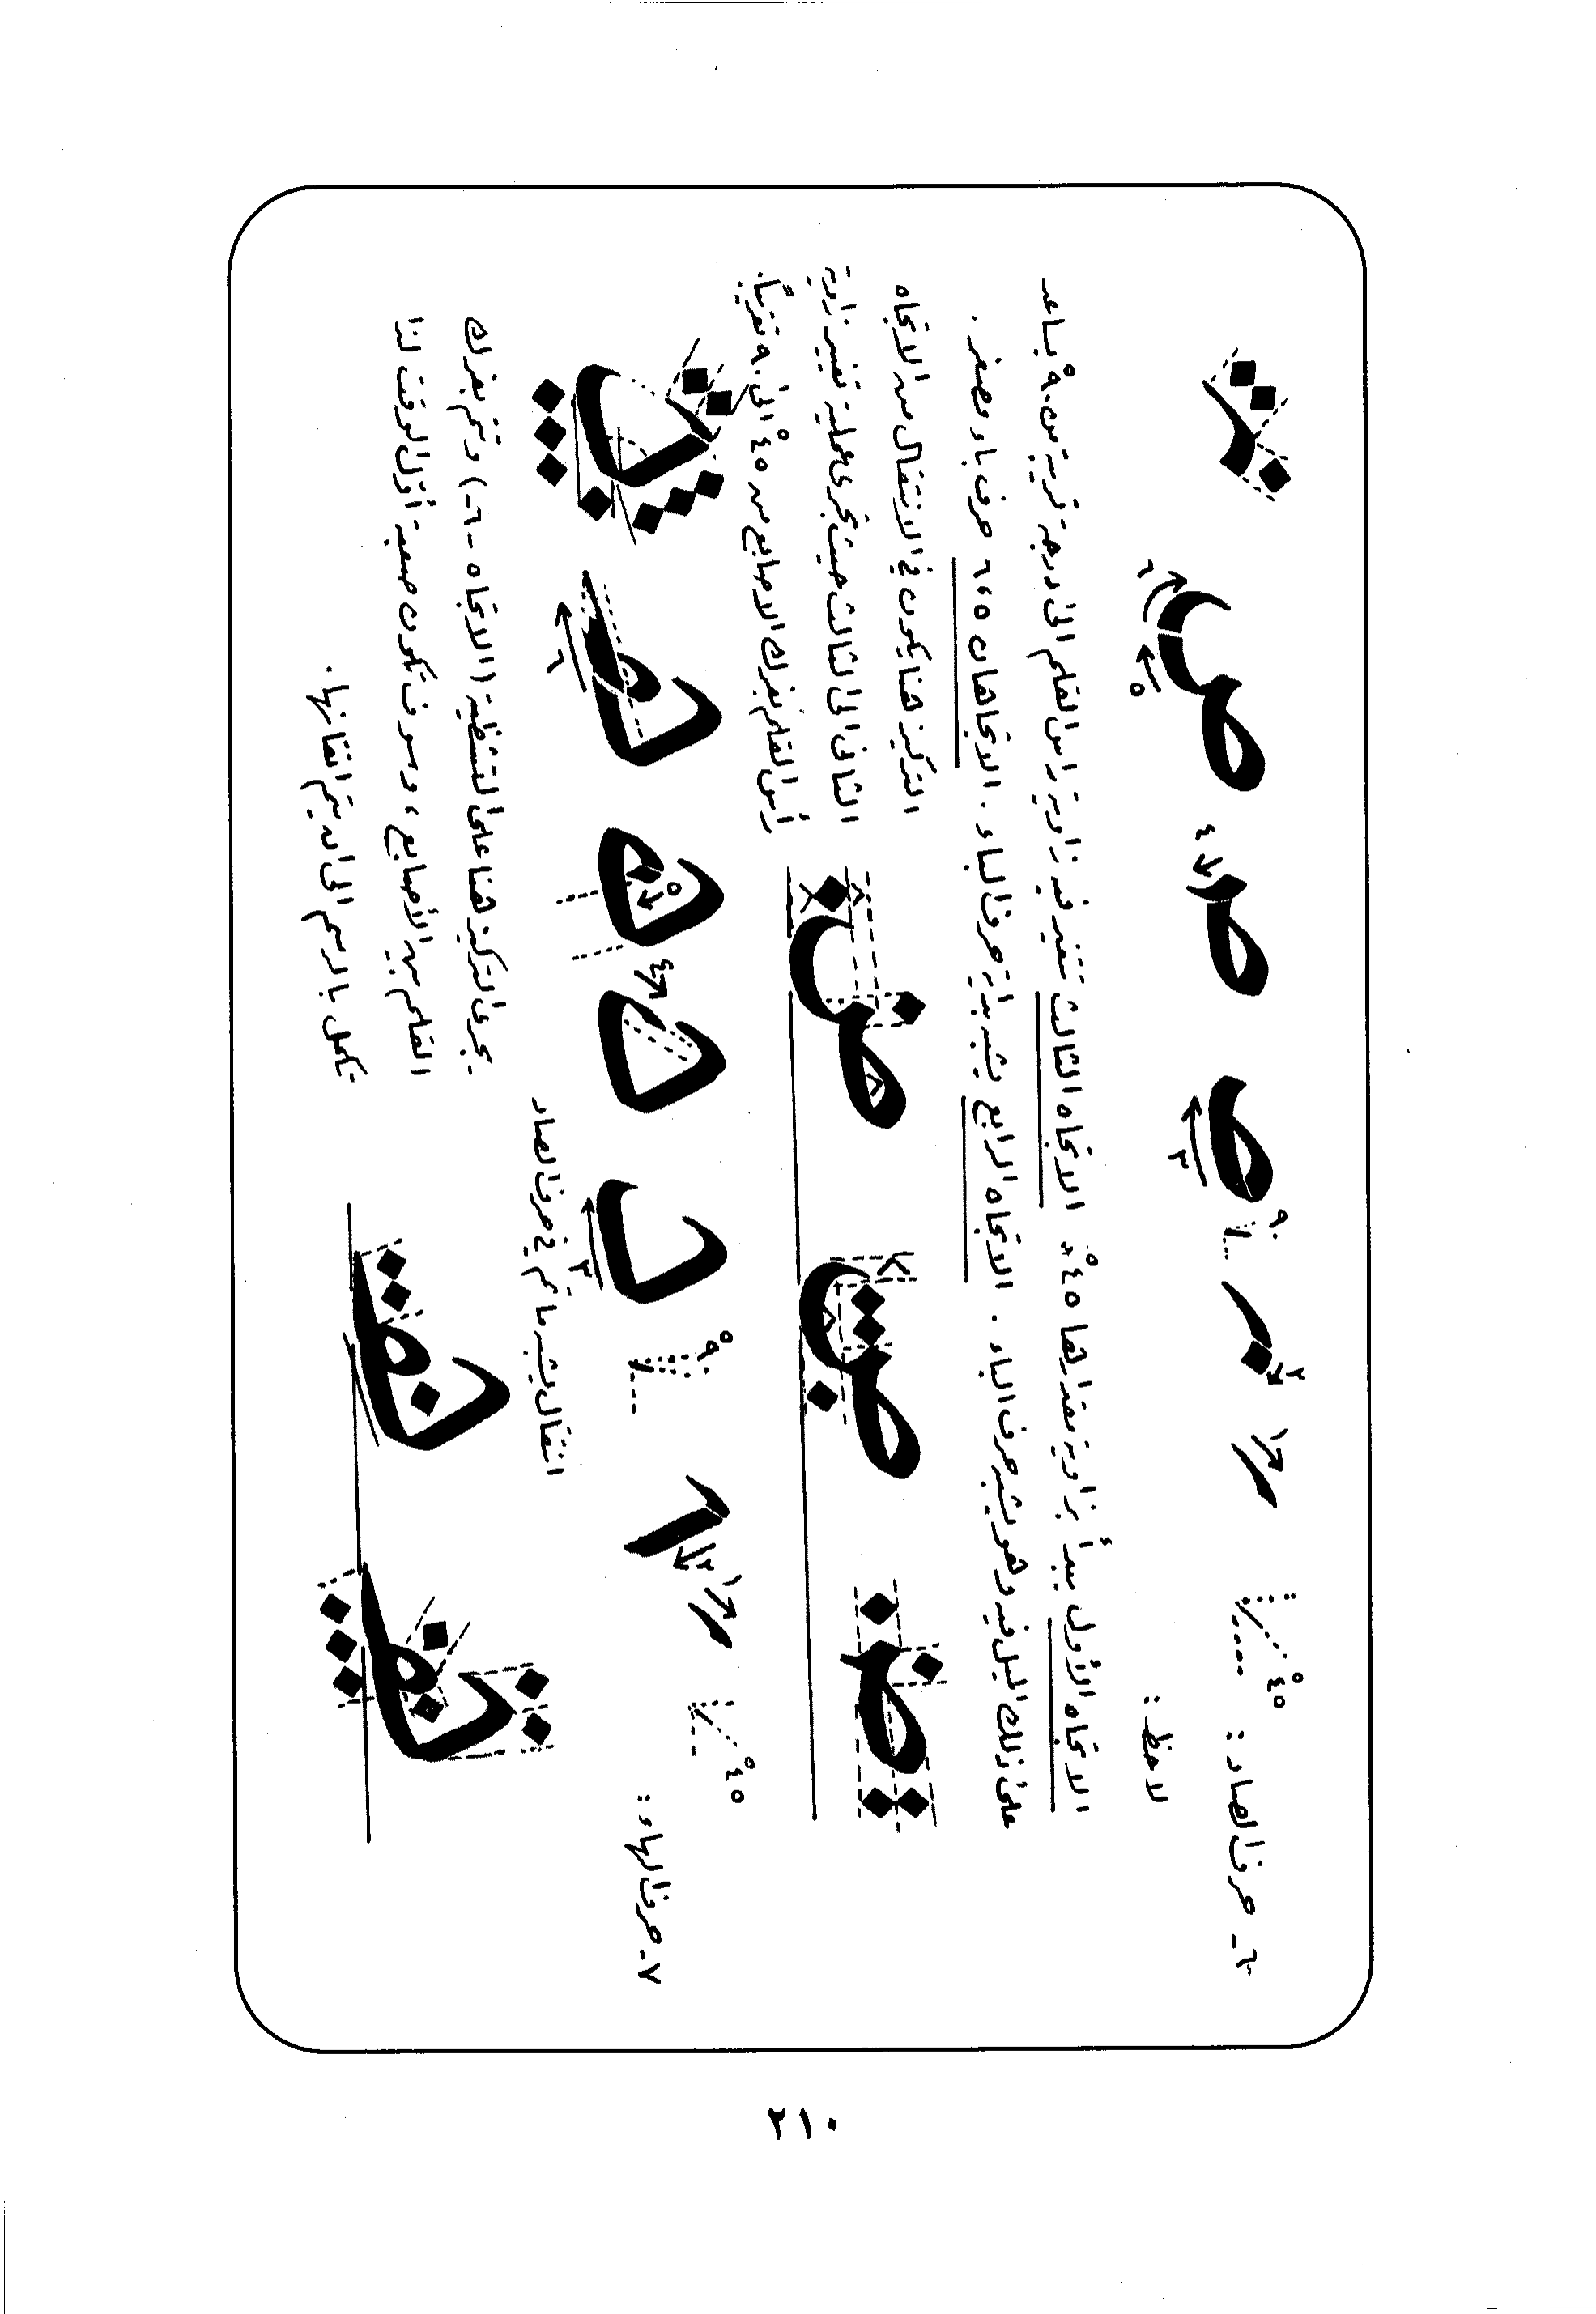 ٦- حرف الصاد :
٤٥°
١
٢
٩٠°
٣
٤
٥
٦
لاحظ :
الاتجاه الأول يبدأ بزاوية مقدارها ٤٥° . الاتجاه الثالث تتغير فيه زاوية رأس القلم الى درجة قريبة من ٩٠° يساعد
على ذلك الميل فيه وهو يشبه حرف الباء . الاتجاه الرابع يشبه بداية حرف الباء . الاتجاهان ٥ ، ٦ حرف باء مصغر .
التركيز هنا يكون في الانتقال من الاتجاه
الثاني الى الثالث حيث تجرى عملية تغيير زاوية
رأس القلم بفرك الاصابع من ٤٥° الى ٩٠° تقريباً .
٧- حرف الهاء :
٤٥°
١
٢
٩٠°
٣
٤
٥
٦
انتقال يشبه ما تم في حرف الصاد
يجري التركيز هنا على التشظية ( الاتجاه -٦- ) وتتم بفرك
القلم بين الأصابع ، وسوف تكون صعبة أول الوقت لذا
تكمل بالرسم الى ان يتم اتقانها .
٢١٠